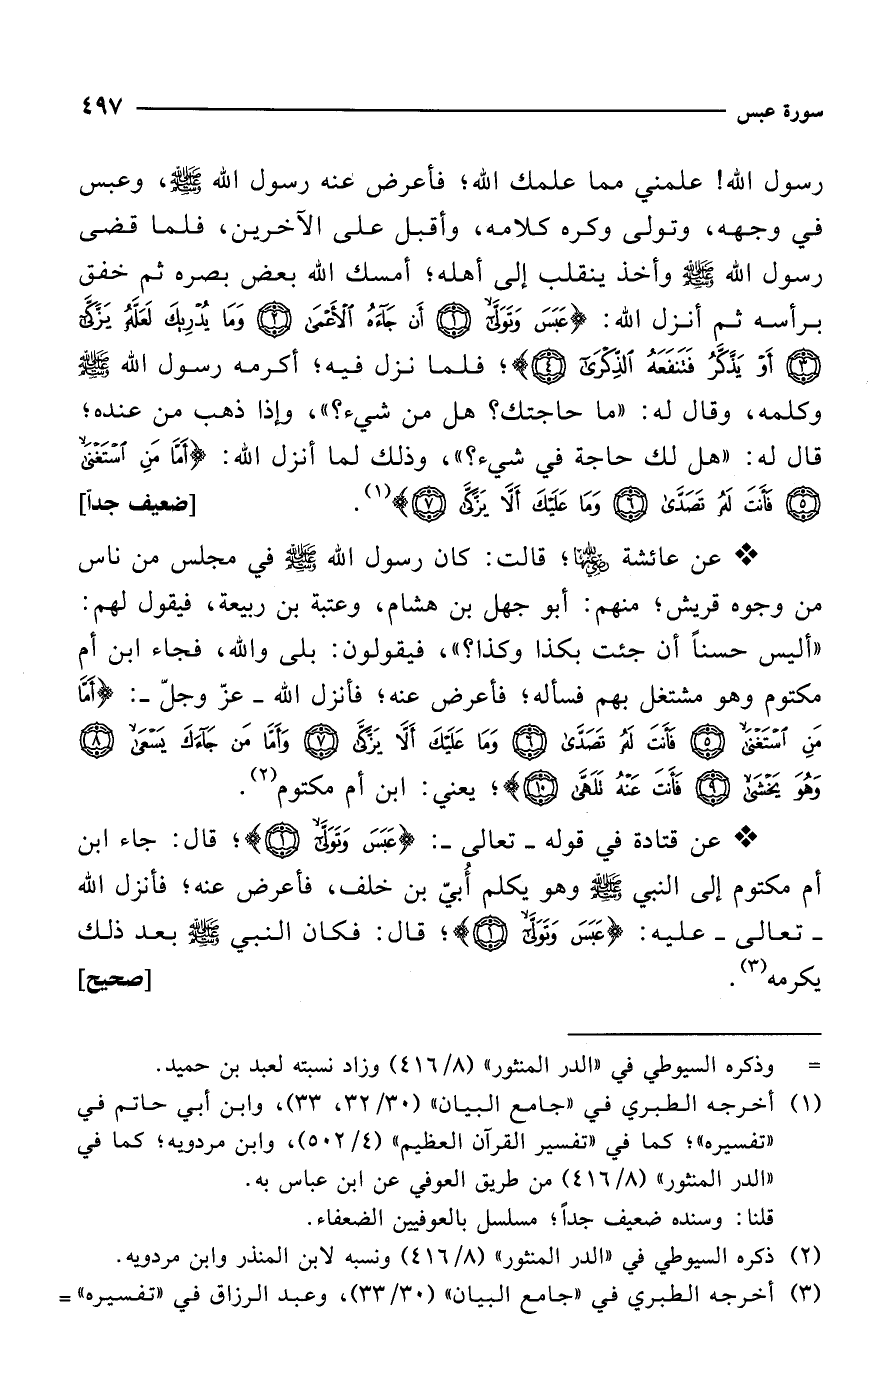 سورة عبس ٤٩٧
رسول الله! علمني مما علمك الله؛ فأعرض عنه رسول الله ﷺ، وعبس
في وجهه، وتولى وكره كلامه، وأقبل على الآخرين، فلما قضى
رسول الله ﷺ وأخذ ينقلب إلى أهله؛ أمسك الله بعض بصره ثم خفق
برأسه ثم أنزل الله: ﴿عَبَسَ وَتَوَلَّىٰٓ ۝١ أَن جَآءَهُ ٱلْأَعْمَىٰ ۝٢ وَمَا يُدْرِيكَ لَعَلَّهُۥ يَزَّكَّىٰٓ
۝٣ أَوْ يَذَّكَّرُ فَتَنفَعَهُ ٱلذِّكْرَىٰٓ ۝٤﴾؛ فلما نزل فيه؛ أكرمه رسول الله ﷺ
وكلمه، وقال له: «ما حاجتك؟ هل من شيء؟»، وإذا ذهب من عنده؛
قال له: «هل لك حاجة في شيء؟»، وذلك لما أنزل الله: ﴿أَمَّا مَنِ ٱسْتَغْنَىٰ
۝٥ فَأَنتَ لَهُۥ تَصَدَّىٰ ۝٦ وَمَا عَلَيْكَ أَلَّا يَزَّكَّىٰ ۝٧﴾(١). [ضعيف جداً]
❖ عن عائشة رضي الله عنها؛ قالت: كان رسول الله ﷺ في مجلس من ناس
من وجوه قريش؛ منهم: أبو جهل بن هشام، وعتبة بن ربيعة، فيقول لهم:
«أليس حسناً أن جئت بكذا وكذا؟»، فيقولون: بلى والله، فجاء ابن أم
مكتوم وهو مشتغل بهم فسأله؛ فأعرض عنه؛ فأنزل الله ـ عزّ وجلّ ـ: ﴿أَمَّا
مَنِ ٱسْتَغْنَىٰ ۝٥ فَأَنتَ لَهُۥ تَصَدَّىٰ ۝٦ وَمَا عَلَيْكَ أَلَّا يَزَّكَّىٰ ۝٧ وَأَمَّا مَن جَآءَكَ يَسْعَىٰ ۝٨
وَهُوَ يَخْشَىٰ ۝٩ فَأَنتَ عَنْهُ تَلَهَّىٰ ۝١٠﴾؛ يعني: ابن أم مكتوم(٢).
❖ عن قتادة في قوله ـ تعالى ـ: ﴿عَبَسَ وَتَوَلَّىٰٓ ۝١﴾؛ قال: جاء ابن
أم مكتوم إلى النبي ﷺ وهو يكلم أُبيّ بن خلف، فأعرض عنه؛ فأنزل الله
ـ تعالى ـ عليه: ﴿عَبَسَ وَتَوَلَّىٰٓ ۝١﴾؛ قال: فكان النبي ﷺ بعد ذلك
يكرمه(٣). [صحيح]
= وذكره السيوطي في «الدر المنثور» (٤١٦/٨) وزاد نسبته لعبد بن حميد.
(١) أخرجه الطبري في «جامع البيان» (٣٢/٣٠، ٣٣)، وابن أبي حاتم في
«تفسيره»؛ كما في «تفسير القرآن العظيم» (٥٠٢/٤)، وابن مردويه؛ كما في
«الدر المنثور» (٤١٦/٨) من طريق العوفي عن ابن عباس به.
قلنا: وسنده ضعيف جداً؛ مسلسل بالعوفيين الضعفاء.
(٢) ذكره السيوطي في «الدر المنثور» (٤١٦/٨) ونسبه لابن المنذر وابن مردويه.
(٣) أخرجه الطبري في «جامع البيان» (٣٣/٣٠)، وعبد الرزاق في «تفسيره» =